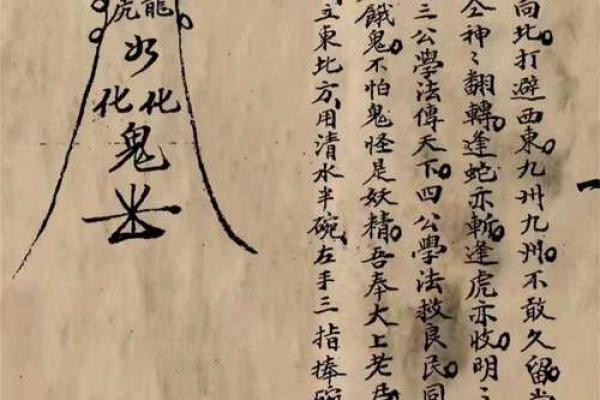 向北。打避西東。九州九州。不敢久留。
仝神〻翻轉。逢蛇亦斬。逢虎亦收。明
三公學法傳天下。四公學法救良民。同
餓鬼。不怕鬼怪是妖精。吾奉大上老君
立東北方、用清水半碗、左手三指捧碗
龍虎
化化
鬼